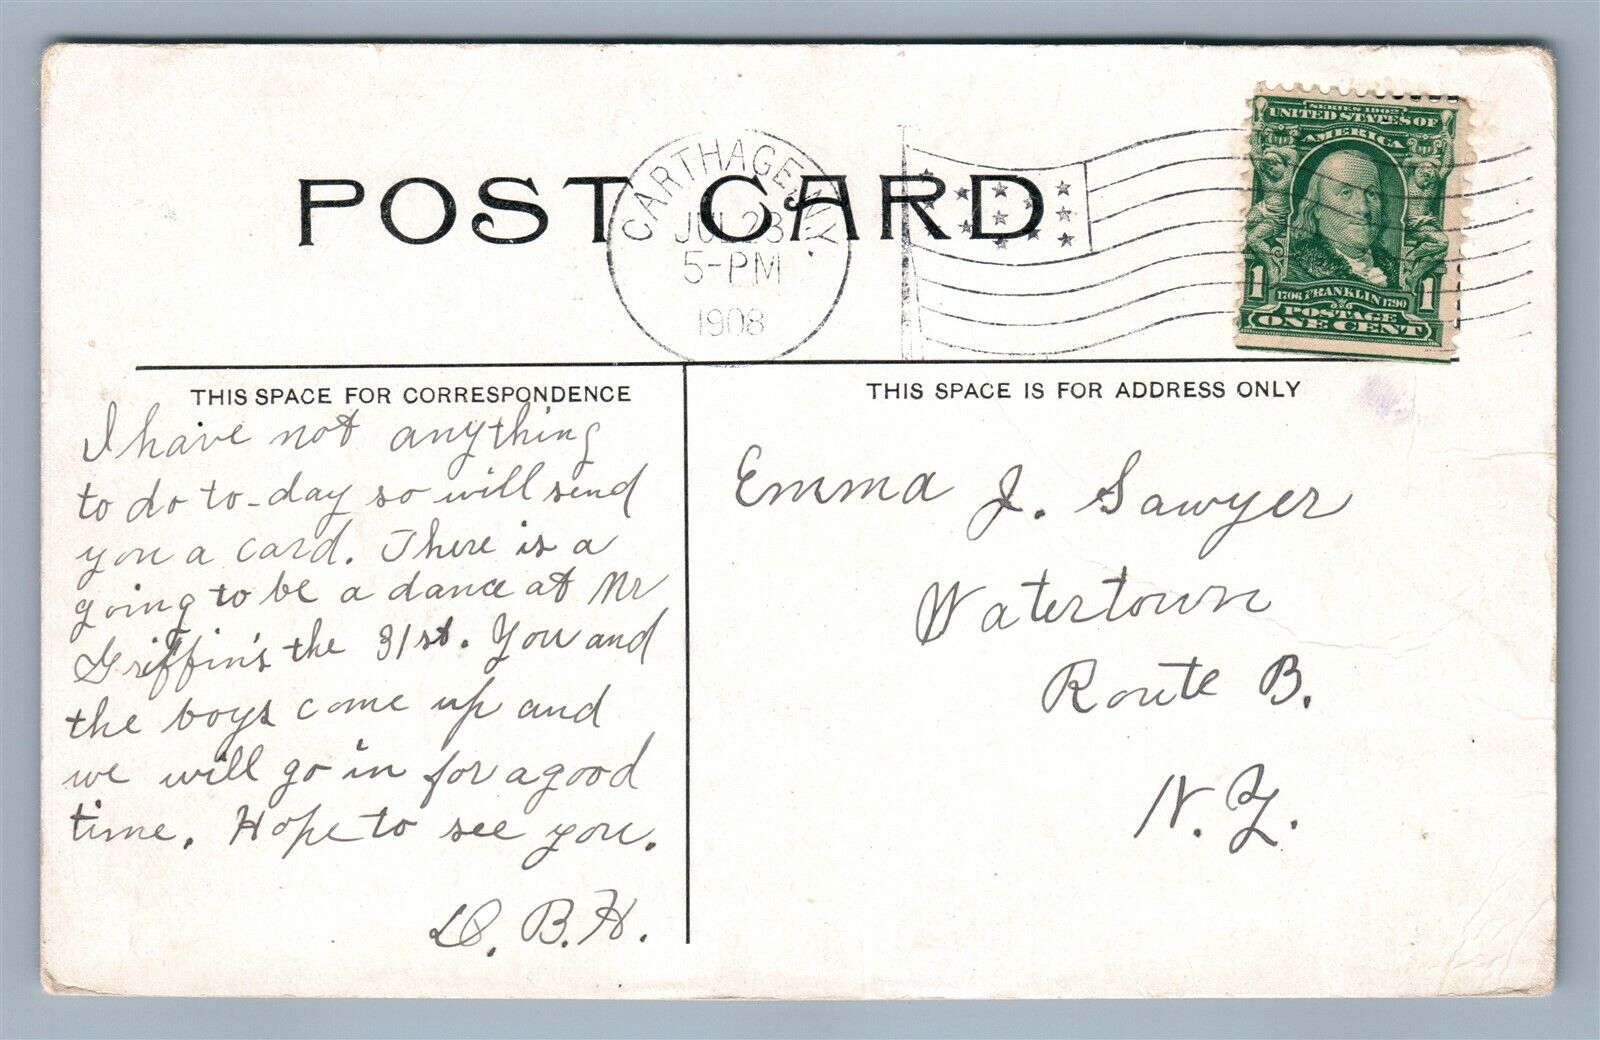 POST CARD
CARTHAGE, N.Y.
JUL 23
5-PM
1908
SERIES 1902
UNITED STATES OF
AMERICA
1 1706 FRANKLIN 1790 1
POSTAGE
ONE CENT
THIS SPACE FOR CORRESPONDENCE
I have not anything
to do to-day so will send
you a card. There is a
going to be a dance at Mr
Griffin's the 31st. You and
the boys come up and
we will go in for a good
time. Hope to see you.
D. B. H.
THIS SPACE IS FOR ADDRESS ONLY
Emma J. Sawyer
Watertown
Route B.
N. Y.